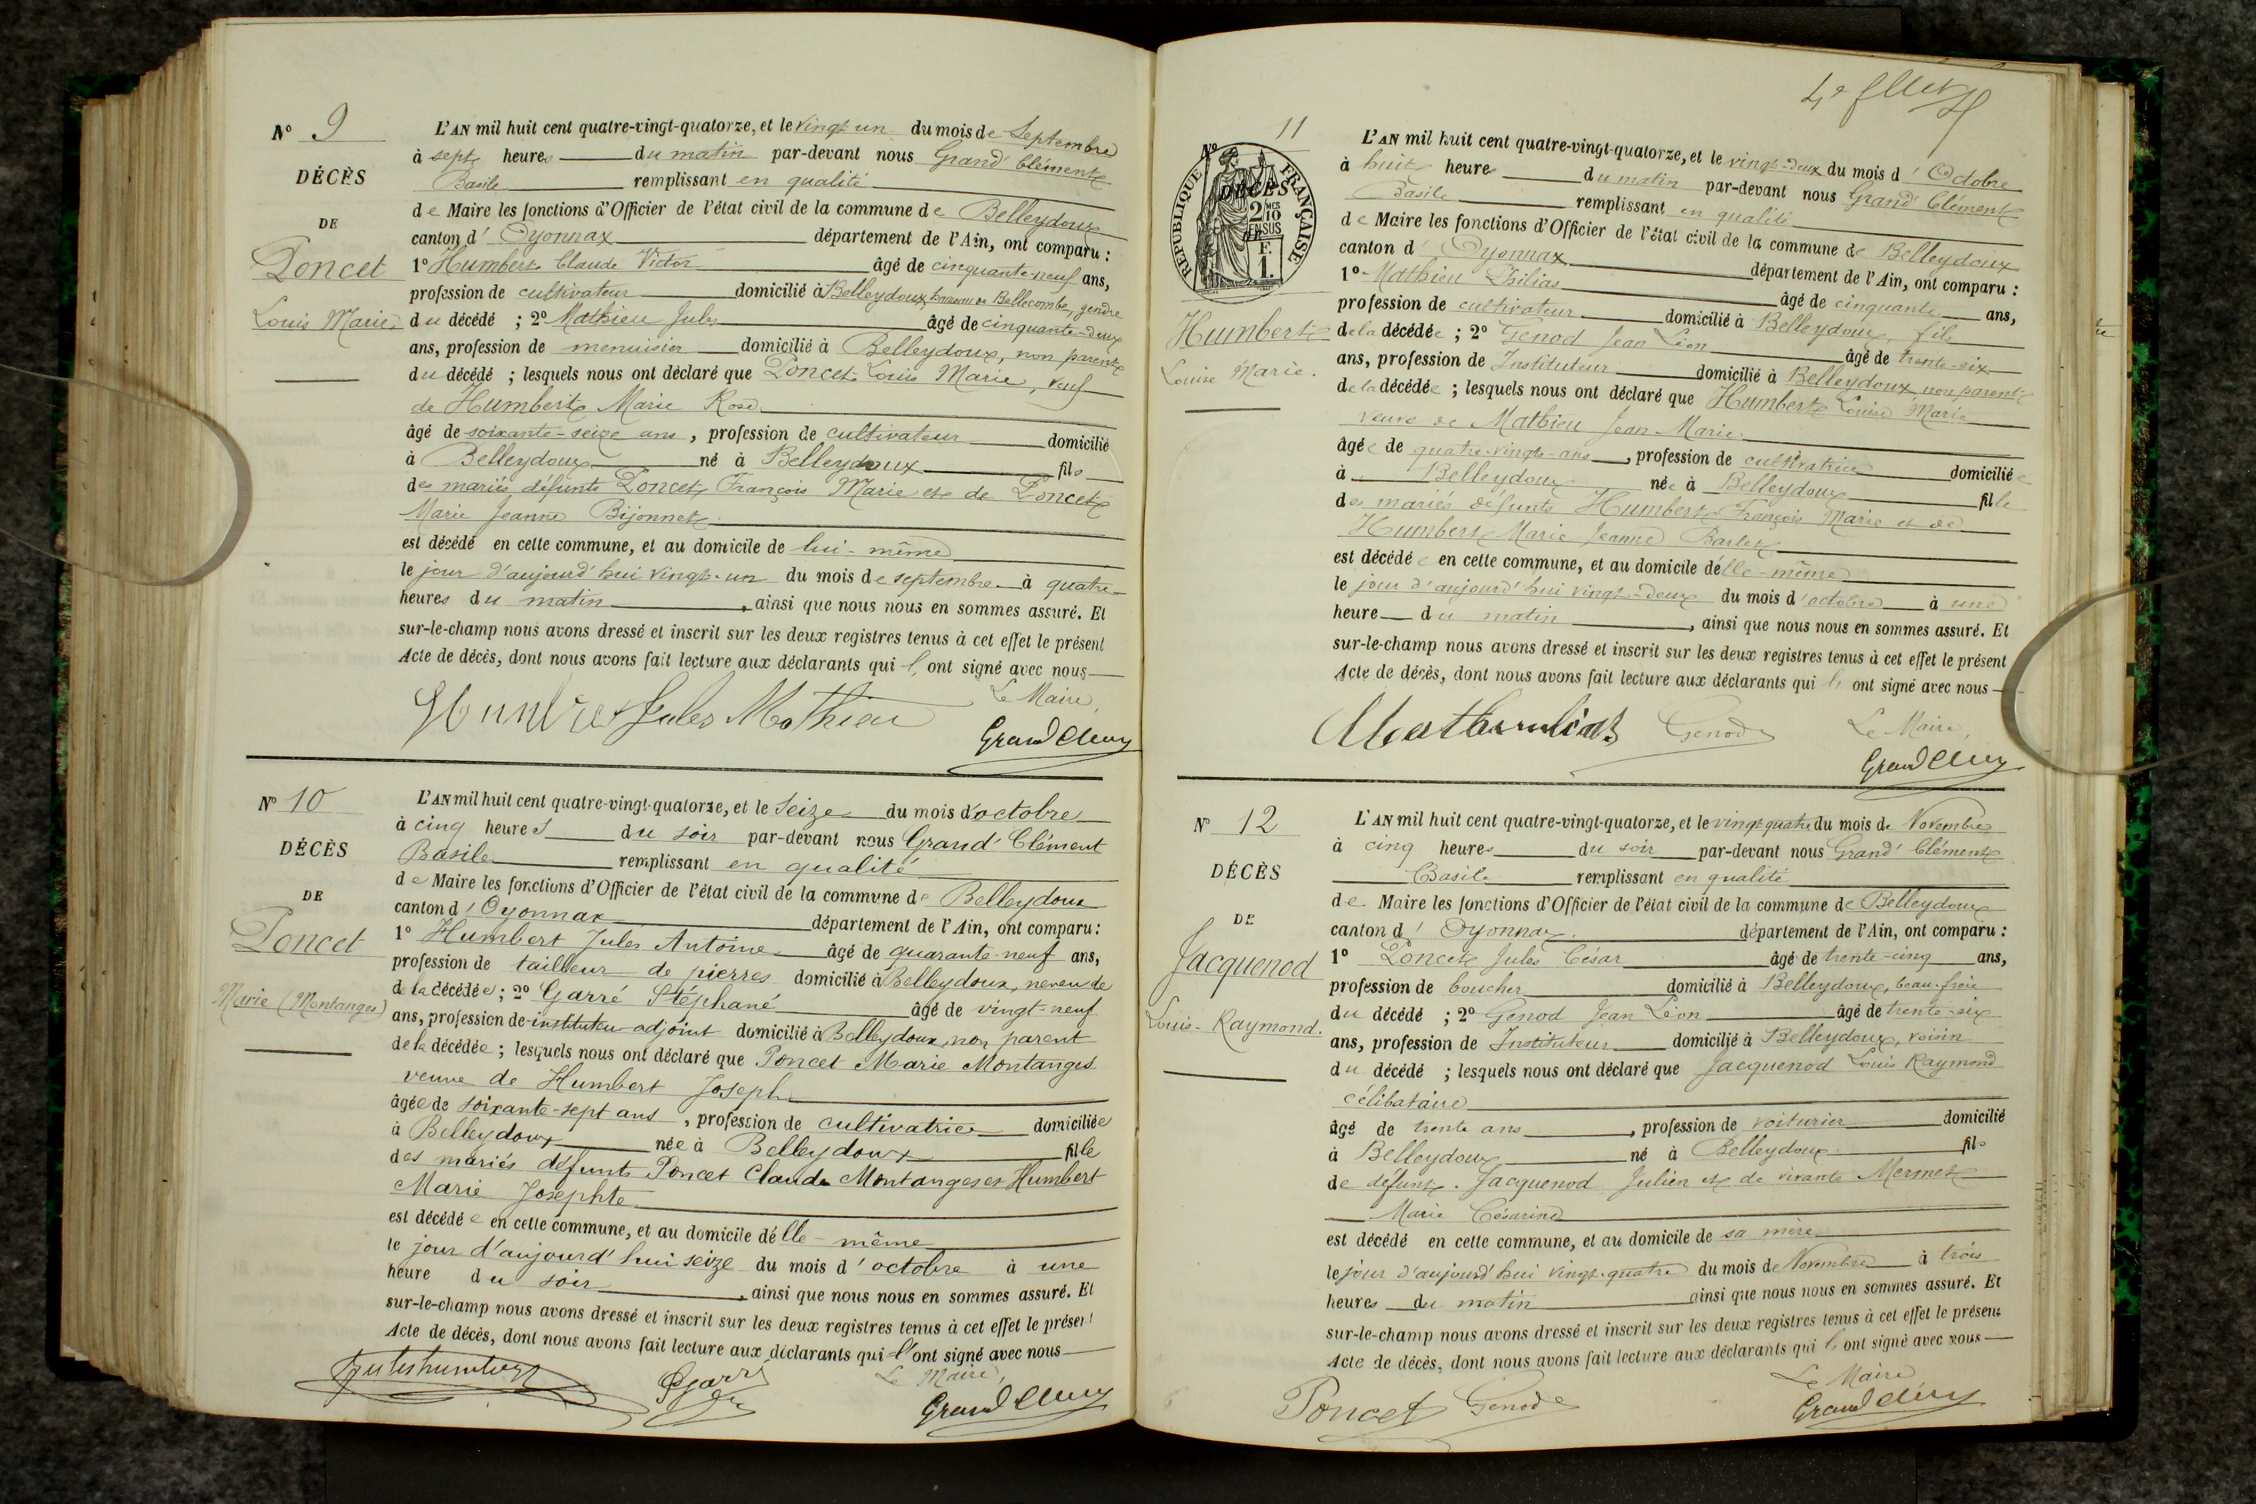 N° 9
DÉCÈS
DE
Poncet
Louis Marie
L'AN mil huit cent quatre-vingt-quatorze, et le vingt un du mois de Septembre
à sept heures du matin par-devant nous Grand Clément
Basile remplissant en qualité
de Maire les fonctions d'Officier de l'état civil de la commune de Belleydoux
canton d' Oyonnax département de l'Ain, ont comparu :
1° Humbert Claude Victor âgé de cinquante-neuf ans,
profession de cultivateur domicilié à Belleydoux, hameau de Bellecombe, gendre
du décédé ; 2° Mathieu Jules âgé de cinquante-deux
ans, profession de menuisier domicilié à Belleydoux, non parent
du décédé ; lesquels nous ont déclaré que Poncet Louis Marie, veuf
de Humbert Marie Rose
âgé de soixante-seize ans, profession de cultivateur domicilié
à Belleydoux né à Belleydoux fils
des mariés défunts Poncet François Marie et de Poncet
Marie Jeanne Bijonnet
est décédé en cette commune, et au domicile de lui-même
le jour d'aujourd'hui vingt-un du mois de septembre à quatre
heures du matin, ainsi que nous nous en sommes assuré. Et
sur-le-champ nous avons dressé et inscrit sur les deux registres tenus à cet effet le présent
Acte de décès, dont nous avons fait lecture aux déclarants qui l' ont signé avec nous
Le Maire,
Humbert Jules Mathieu Grand Clém
N° 10
DÉCÈS
DE
Poncet
Marie (Montanges)
L'AN mil huit cent quatre-vingt-quatorze, et le Seize du mois d'octobre
à cinq heures du soir par-devant nous Grand' Clément
Basile remplissant en qualité
de Maire les fonctions d'Officier de l'état civil de la commune de Belleydoux
canton d'Oyonnax département de l'Ain, ont comparu :
1° Humbert Jules Antoine âgé de quarante-neuf ans,
profession de tailleur de pierres domicilié à Belleydoux, neveu de
de la décédée ; 2° Garré Stéphané âgé de vingt-neuf
ans, profession de instituteur adjoint domicilié à Belleydoux, non parent
de la décédée ; lesquels nous ont déclaré que Poncet Marie Montanges
veuve de Humbert Joseph
âgée de soixante-sept ans, profession de cultivatrice domiciliée
à Belleydoux née à Belleydoux fille
des mariés défunts Poncet Claude Montanges et Humbert
Marie Josephte
est décédée en cette commune, et au domicile d'elle-même
le jour d'aujourd'hui seize du mois d'octobre à une
heure du soir, ainsi que nous nous en sommes assuré. Et
sur-le-champ nous avons dressé et inscrit sur les deux registres tenus à cet effet le présent
Acte de décès, dont nous avons fait lecture aux déclarants qui l'ont signé avec nous
Le Maire,
Jules humbert Garré Grand Clém
4e feuillet
N° 11
DÉCÈS
RÉPUBLIQUE FRANÇAISE
2 MES
10
EN SUS
F.
1.
Humbert
Louise Marie.
L'AN mil huit cent quatre-vingt-quatorze, et le vingt-deux du mois d'Octobre
à huit heures du matin par-devant nous Grand' Clément
Basile remplissant en qualité
de Maire les fonctions d'Officier de l'état civil de la commune de Belleydoux
canton d' Oyonnax département de l'Ain, ont comparu :
1° Mathieu Philias âgé de cinquante ans,
profession de cultivateur domicilié à Belleydoux, fils
de la décédée ; 2° Genod Jean Léon âgé de trente-six
ans, profession de Instituteur domicilié à Belleydoux, non parent
de la décédée ; lesquels nous ont déclaré que Humbert Louise Marie
veuve de Mathieu Jean-Marie
âgée de quatre-vingts-ans, profession de cultivatrice domiciliée
à Belleydoux née à Belleydoux fille
des mariés défunts Humbert François Marie et de
Humbert Marie Jeanne Barlet
est décédée en cette commune, et au domicile d'elle-même
le jour d'aujourd'hui vingt-deux du mois d'octobre à une
heure du matin, ainsi que nous nous en sommes assuré. Et
sur-le-champ nous avons dressé et inscrit sur les deux registres tenus à cet effet le présent
Acte de décès, dont nous avons fait lecture aux déclarants qui l' ont signé avec nous
Genod Le Maire,
Grand Clém
N° 12
DÉCÈS
DE
Jacquenod
Louis-Raymond.
L'AN mil huit cent quatre-vingt-quatorze, et le vingt quatre du mois de Novembre
à cinq heures du soir par-devant nous Grand' Clément
Basile remplissant en qualité
de Maire les fonctions d'Officier de l'état civil de la commune de Belleydoux
canton d' Oyonnax département de l'Ain, ont comparu :
1° Poncet Jules César âgé de trente-cinq ans,
profession de boucher domicilié à Belleydoux, beau-frère
du décédé ; 2° Genod Jean Léon âgé de trente-six
ans, profession de Instituteur domicilié à Belleydoux, voisin
du décédé ; lesquels nous ont déclaré que Jacquenod Louis Raymond
célibataire
âgé de trente ans, profession de voiturier domicilié
à Belleydoux né à Belleydoux fils
de défunt Jacquenod Julien et de vivante Mermet
Marie Césarine
est décédé en cette commune, et au domicile de sa mère
le jour d'aujourd'hui vingt-quatre du mois de Novembre à trois
heures du matin ainsi que nous nous en sommes assuré. Et
sur-le-champ nous avons dressé et inscrit sur les deux registres tenus à cet effet le présent
Acte de décès, dont nous avons fait lecture aux déclarants qui l' ont signé avec nous
Le Maire
Poncet Genod Grand Clém